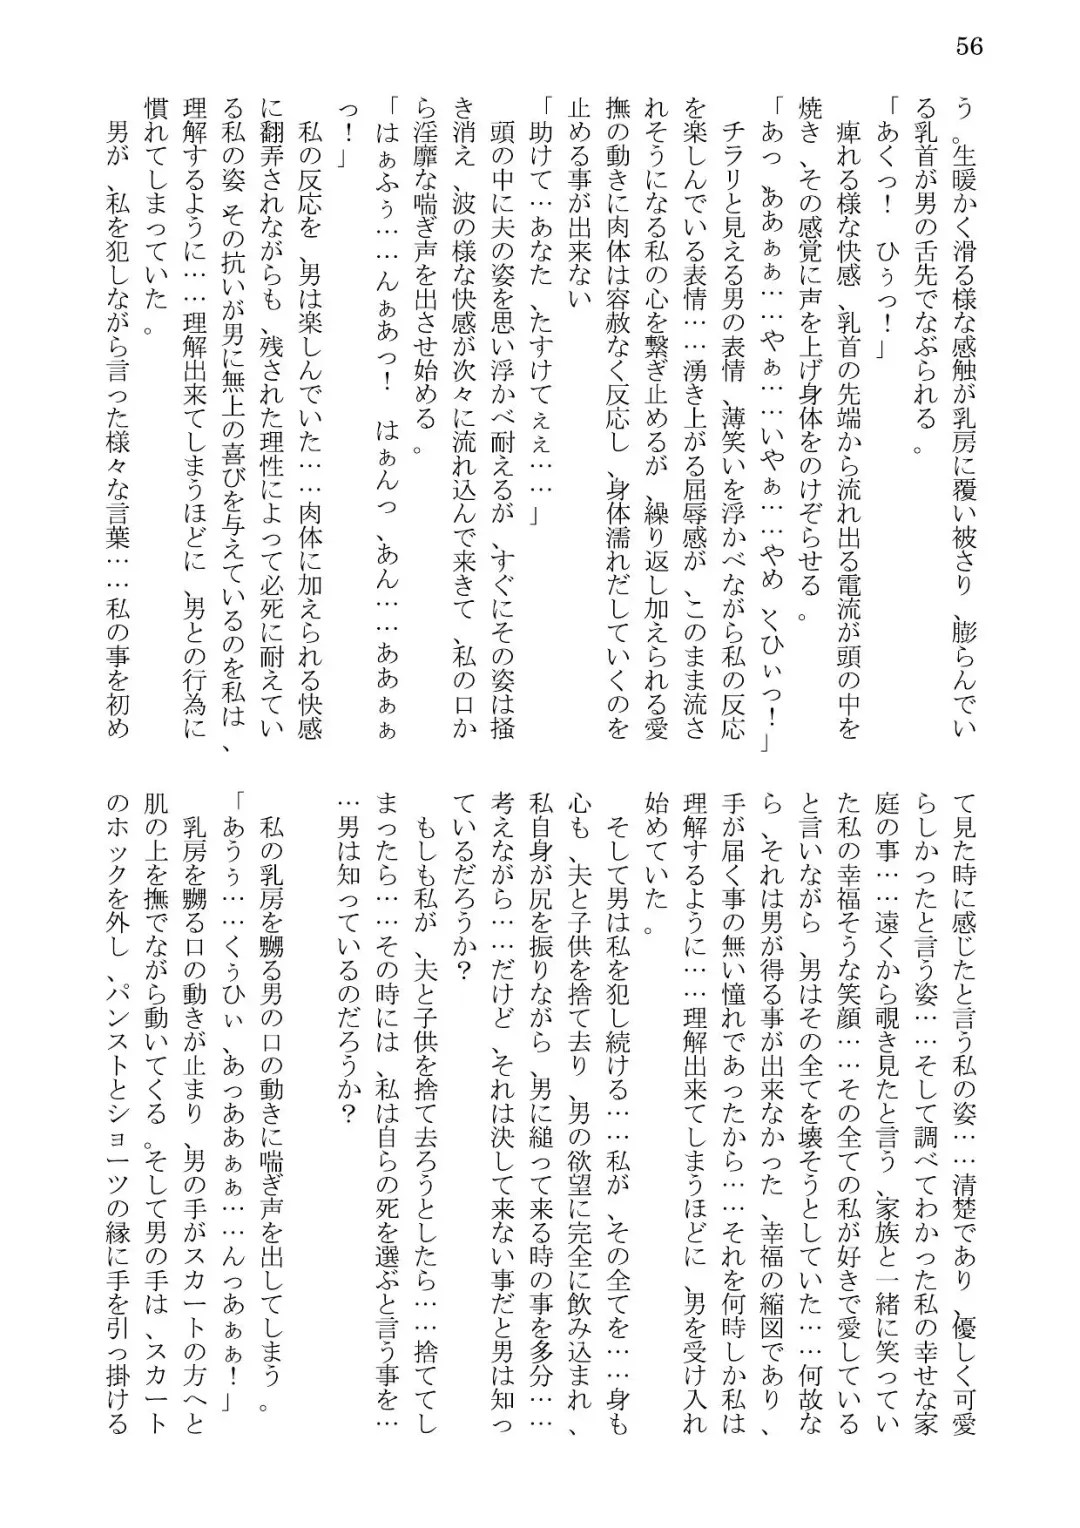 56
う。生暖かく滑る様な感触が乳房に覆い被さり、膨らんでい
る乳首が男の舌先でなぶられる。
「あくっ！　ひぅっ！」
　痺れる様な快感、乳首の先端から流れ出る電流が頭の中を
焼き、その感覚に声を上げ身体をのけぞらせる。
「あっ、ああぁぁ……やぁ……いやぁ……やめ、くひぃっ！」
　チラリと見える男の表情、薄笑いを浮かべながら私の反応
を楽しんでいる表情……湧き上がる屈辱感が、このまま流さ
れそうになる私の心を繋ぎ止めるが、繰り返し加えられる愛
撫の動きに肉体は容赦なく反応し、身体濡れだしていくのを
止める事が出来ない
「助けて…あなた、たすけてぇぇ……」
　頭の中に夫の姿を思い浮かべ耐えるが、すぐにその姿は掻
き消え、波の様な快感が次々に流れ込んで来きて、私の口か
ら淫靡な喘ぎ声を出させ始める。
「はぁふぅ……んぁあっ！　はぁんっ、あん……ああぁぁ
っ！」
　私の反応を、男は楽しんでいた……肉体に加えられる快感
に翻弄されながらも、残された理性によって必死に耐えてい
る私の姿、その抗いが男に無上の喜びを与えているのを私は、
理解するように……理解出来てしまうほどに、男との行為に
慣れてしまっていた。
　男が、私を犯しながら言った様々な言葉……私の事を初め
て見た時に感じたと言う私の姿……清楚であり、優しく可愛
らしかったと言う姿……そして調べてわかった私の幸せな家
庭の事……遠くから覗き見たと言う、家族と一緒に笑ってい
た私の幸福そうな笑顔……その全ての私が好きで愛している
と言いながら、男はその全てを壊そうとしていた……何故な
ら、それは男が得る事が出来なかった、幸福の縮図であり、
手が届く事の無い憧れであったから……それを何時しか私は
理解するように……理解出来てしまうほどに、男を受け入れ
始めていた。
　そして男は私を犯し続ける……私が、その全てを……身も
心も、夫と子供を捨て去り、男の欲望に完全に飲み込まれ、
私自身が尻を振りながら、男に縋って来る時の事を多分……
考えながら……だけど、それは決して来ない事だと男は知っ
ているだろうか？
　もしも私が、夫と子供を捨て去ろうとしたら……捨ててし
まったら……その時には、私は自らの死を選ぶと言う事を…
…男は知っているのだろうか？
　私の乳房を嬲る男の口の動きに喘ぎ声を出してしまう。
「あうぅ……くぅひぃ、あっああぁぁ……んっあぁぁ！」
　乳房を嬲る口の動きが止まり、男の手がスカートの方へと
肌の上を撫でながら動いてくる。そして男の手は、スカート
のホックを外し、パンストとショーツの縁に手を引っ掛ける